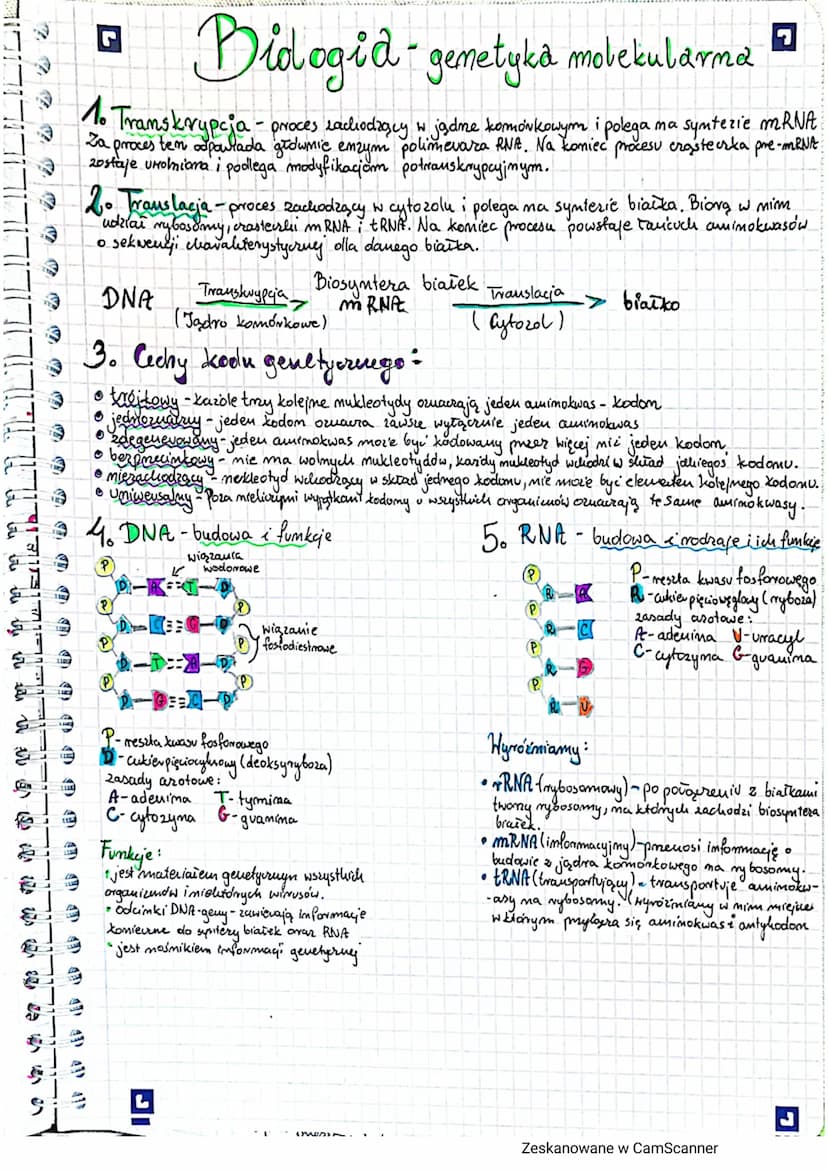 Biologia - genetyka molekularna
1. Transkrypcja - proces zachodzący w jądrze komórkowym i polega na syntezie mRNA
Za proces ten odpowiada głównie enzym polimeraza RNA. Na koniec procesu cząsteczka pre-mRNA
zostaje uwolniona i podlega modyfikacjom potranskrypcyjnym.
2. Translacja - proces zachodzący w cytozolu i polega na syntezie białka. Biorą w nim
udział rybosomy, cząsteczki mRNA i tRNA. Na koniec procesu powstaje łańcuch aminokwasów
o sekwencji charakterystycznej dla danego białka.
Biosynteza białek
DNA Transkrypcja mRNA Translacja białko
(Jądro komórkowe) (Cytozol)
3. Cechy kodu genetycznego:
• trójkowy - każde trzy kolejne nukleotydy oznaczają jeden aminokwas - kodon
• jednoznaczny - jeden kodon oznacza zawsze wyłącznie jeden aminokwas
• zdegenerowany - jeden aminokwas może być kodowany przez więcej niż jeden kodon.
• bezprzecinkowy - nie ma wolnych nukleotydów, każdy nukleotyd wchodzi w skład jakiegoś kodonu.
• niezachodzący - nukleotyd wchodzący w skład jednego kodonu, nie może być elementem kolejnego kodonu.
• uniwersalny - Poza nielicznymi wyjątkami kodony u wszystkich organizmów oznaczają te same aminokwasy.
4. DNA - budowa i funkcje
wiązania
wodorowe
P
D A T D
P P
D C G D
P P
wiązanie
fosfodiestrowe
D T A D
P P
D G C D
P - reszta kwasu fosforowego
D - cukier pięciocylowy (deoksyryboza)
zasady azotowe:
A - adenina T - tymina
C - cytozyna G - guanina
Funkcje:
• jest materiałem genetycznym wszystkich
organizmów i niektórych wirusów.
• odcinki DNA - geny - zawierają informacje
konieczne do syntezy białek oraz RNA
• jest nośnikiem informacji genetycznej
5. RNA - budowa i rodzaje i ich funkcje
P
R A
P
R C
P
R G
P
R U
P - reszta kwasu fosforowego
R - cukier pięciowęglowy (ryboza)
zasady azotowe:
A - adenina U - uracyl
C - cytozyna G - guanina
Wyróżniamy:
• rRNA (rybosomowy) - po połączeniu z białkami
tworzy rybosomy, na których zachodzi biosynteza
białek.
• mRNA (informacyjny) - przenosi informację o
budowie z jądra komórkowego na rybosomy.
• tRNA (transportujący) - transportuje aminokw-
-asy na rybosomy. (Wyróżniamy w nim miejsce
w którym przyłącza się aminokwas i antykodon
Zeskanowane w CamScanner